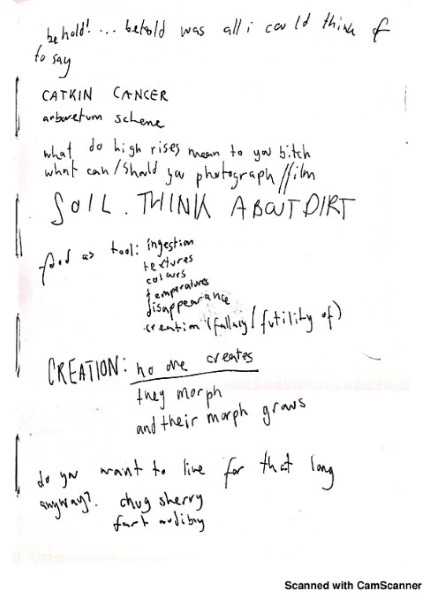 behold! ... behold was all i could think of
to say
CATKIN CANCER
arboretum scheme
what do high rises mean to you bitch
what can/should you photograph/film
SOIL. THINK ABOUT DIRT
food as tool: ingestion
textures
colours
temperatures
disappearance
creation (fallacy/futility of)
CREATION: no one creates
they morph
and their morph grows
do you want to live for that long
anyway? chug sherry
fart audibly
Scanned with CamScanner